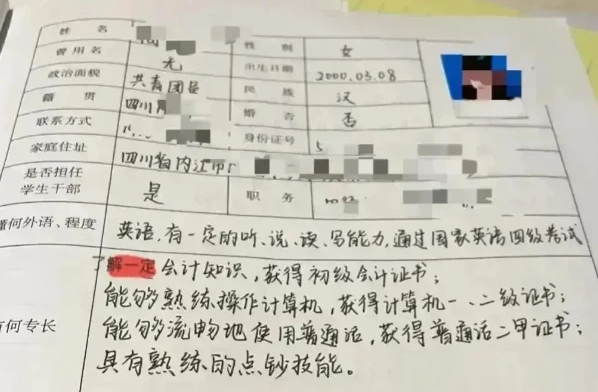 姓 名 性 别 女
曾用名 无 出生日期 2000.03.08
政治面貌 共青团员 民 族 汉
籍 贯 四川 婚 否 否
联系方式 身份证号 5
家庭住址 四川省内江市
是否担任
学生干部 是 职 务
懂何外语、程度 英语,有一定的听、说、读、写能力,通过国家英语四级考试
了解一定会计知识,获得初级会计证书;
能够熟练操作计算机,获得计算机一、二级证书;
有何专长 能够流畅地使用普通话,获得普通话二甲证书;
具有熟练的点钞技能。